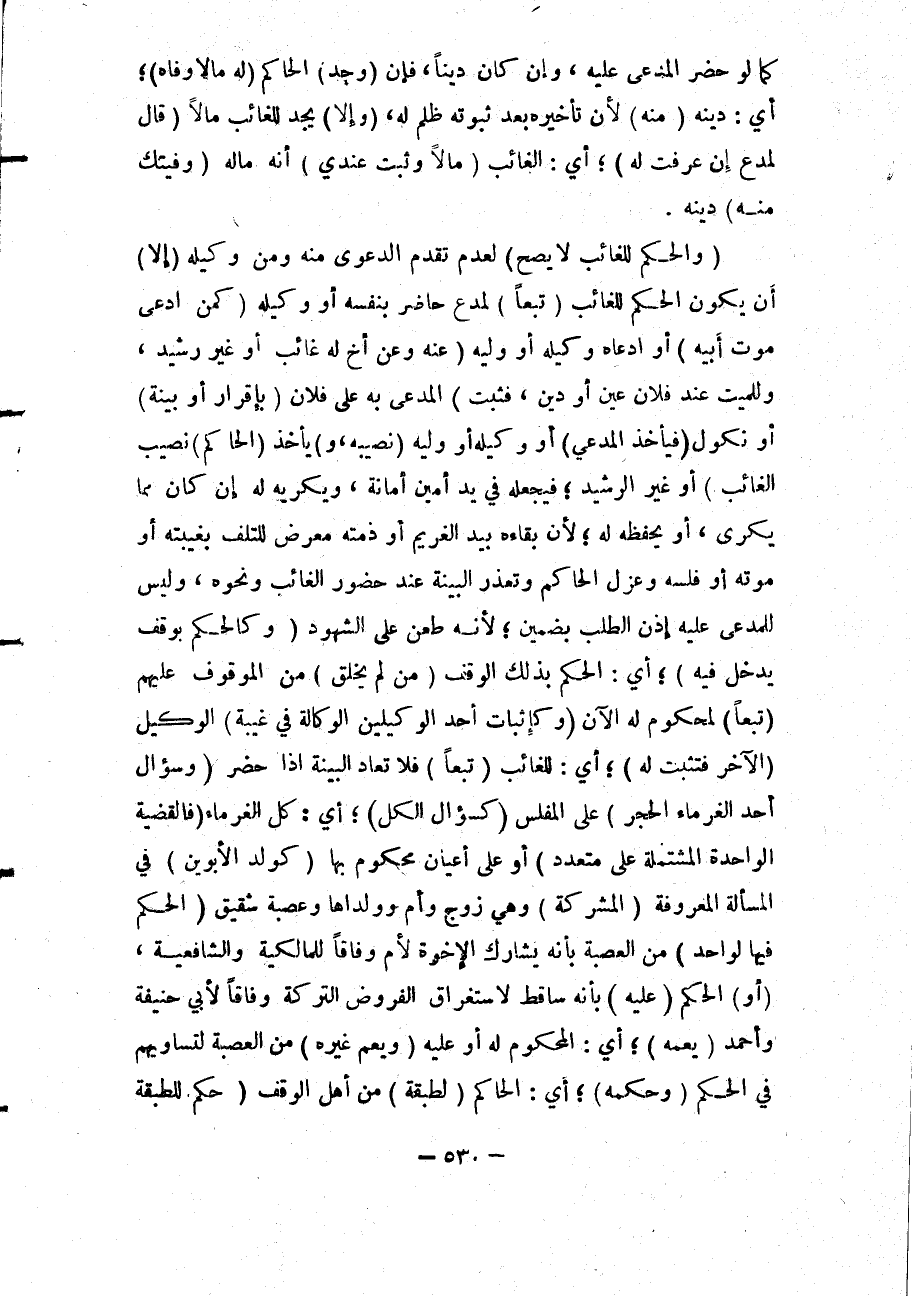 كما لو حضر المدعى عليه ، وان كان ديناً، فإن (وجد) الحاكم (له مالا وفاه)؛
أي : دينه ( منه) لأن تأخيره بعد ثبوته ظلم له، (وإلا) يجد للغائب مالاً ( قال
لمدع إن عرفت له ) ؛ أي : الغائب ( مالاً وثبت عندي ) أنه ماله ( وفيتك
منه) دينه .
( والحكم للغائب لا يصح) لعدم تقدم الدعوى منه ومن وكيله (إلا)
أن يكون الحكم للغائب ( تبعاً ) لمدع حاضر بنفسه أو وكيله ( كمن ادعى
موت أبيه ) أو ادعاه وكيله أو وليه ( عنه وعن أخ له غائب أو غير رشيد ،
وللميت عند فلان عين أو دين ، فثبت ) المدعى به على فلان ( بإقرار أو بينة)
أو نكول(فيأخذ المدعي) أو وكيله أو وليه (نصيبه،و)يأخذ (الحاكم)نصيب
الغائب ) أو غير الرشيد ؛ فيجعله في يد أمين أمانة ، ويكريه له إن كان مما
يكرى ، أو يحفظه له ؛ لأن بقاءه بيد الغريم أو ذمته معرض للتلف بغيبته أو
موته أو فلسه وعزل الحاكم وتعذر البينة عند حضور الغائب ونحوه ، وليس
للمدعى عليه إذن الطلب بضمين ؛ لأنه طعن على الشهود ( وكالحكم بوقف
يدخل فيه ) ؛ أي : الحكم بذلك الوقف ( من لم يخلق ) من الموقوف عليهم
(تبعاً) لمحكوم له الآن (وكإثبات أحد الوكيلين الوكالة في غيبة) الوكيل
(الآخر فتثبت له ) ؛ أي : للغائب ( تبعاً ) فلا تعاد البينة اذا حضر ( وسؤال
أحد الغرماء الحجر ) على المفلس (كسؤال الكل) ؛ أي : كل الغرماء(فالقضية
الواحدة المشتملة على متعدد ) أو على أعيان محكوم بها ( كولد الأبوين ) في
المسألة المعروفة ( المشركة ) وهي زوج وأم وولداها وعصبة شقيق ( الحكم
فيها لواحد ) من العصبة بأنه يشارك الإخوة لأم وفاقاً للمالكية والشافعية ،
(أو) الحكم ( عليه ) بأنه ساقط لاستغراق الفروض التركة وفاقاً لأبي حنيفة
وأحمد ( يعمه ) ؛ أي : المحكوم له أو عليه ( ويعم غيره ) من العصبة لتساويهم
في الحكم ( وحكمه) ؛ أي : الحاكم ( لطبقة ) من أهل الوقف ( حكم للطبقة
– ٥٣٠ –